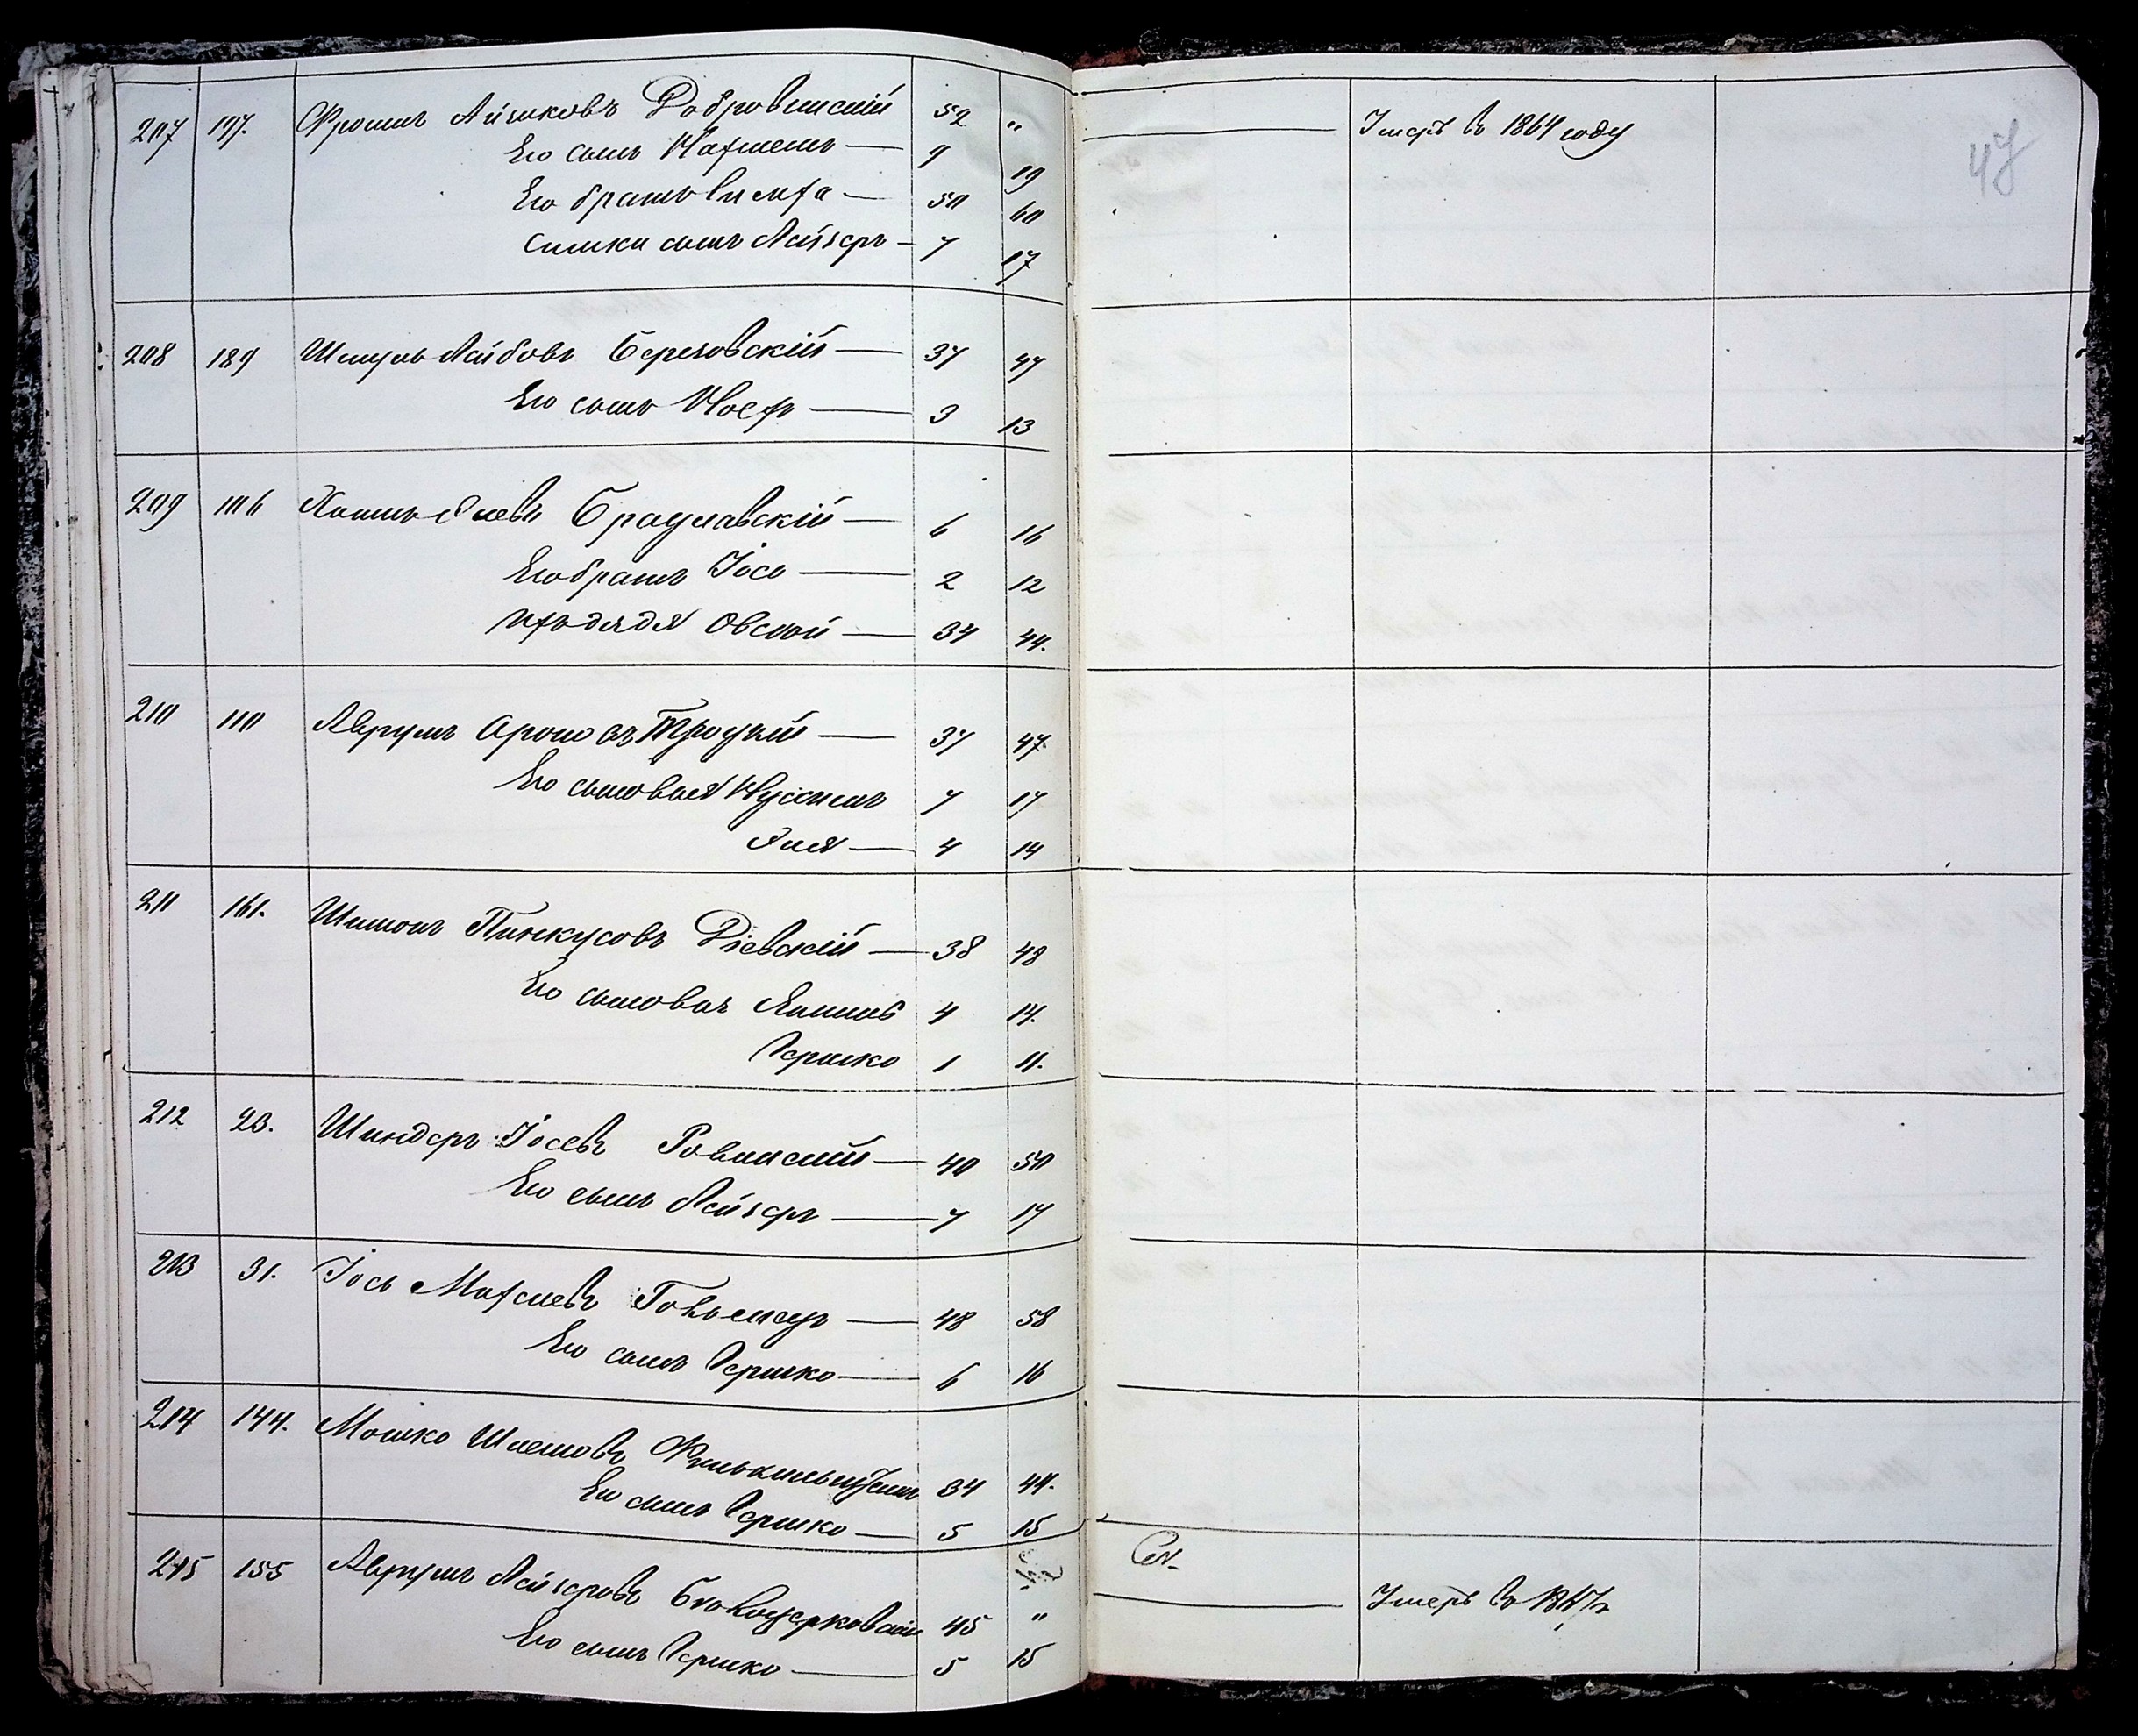 47
207 197. Фроимъ Айзиковъ Добровинскій 52 " Умеръ въ 1864 году
Его сынъ Нахменъ — 9 19
Его братъ Симха — 50 60
Симхи сынъ Лейзеръ — 7 17
208 189 Шмуль Лейбовъ Березовскій — 37 47
Его сынъ Носъ — 3 13
209 106 Хаимъ Элевъ Брацлавскій — 6 16
Его братъ Іось — 2 12
Ихъ дядя Овсей — 34 44.
210 110 Аврумъ Ароновъ Троцкій — 37 47
Его сыновья Нусинъ 7 17
Эля — 4 14
211 161. Шимонъ Пинкусовъ Кіевскій — 38 48
Его сыновья 4 14.
Гершко 1 11.
212 23. Шендеръ Іосевъ Ровинскій — 40 50
Его сынъ Лейзеръ — 7 17
213 31. Іось — 48 58
Его сынъ Гершко — 6 16
214 144. Мошко Шлемовъ 34 44.
Его сынъ Гершко — 5 15
215 155 Аврумъ Лейзеровъ Бѣлоцерковскій 45 " Умеръ въ
Его сынъ Гершко — 5 15